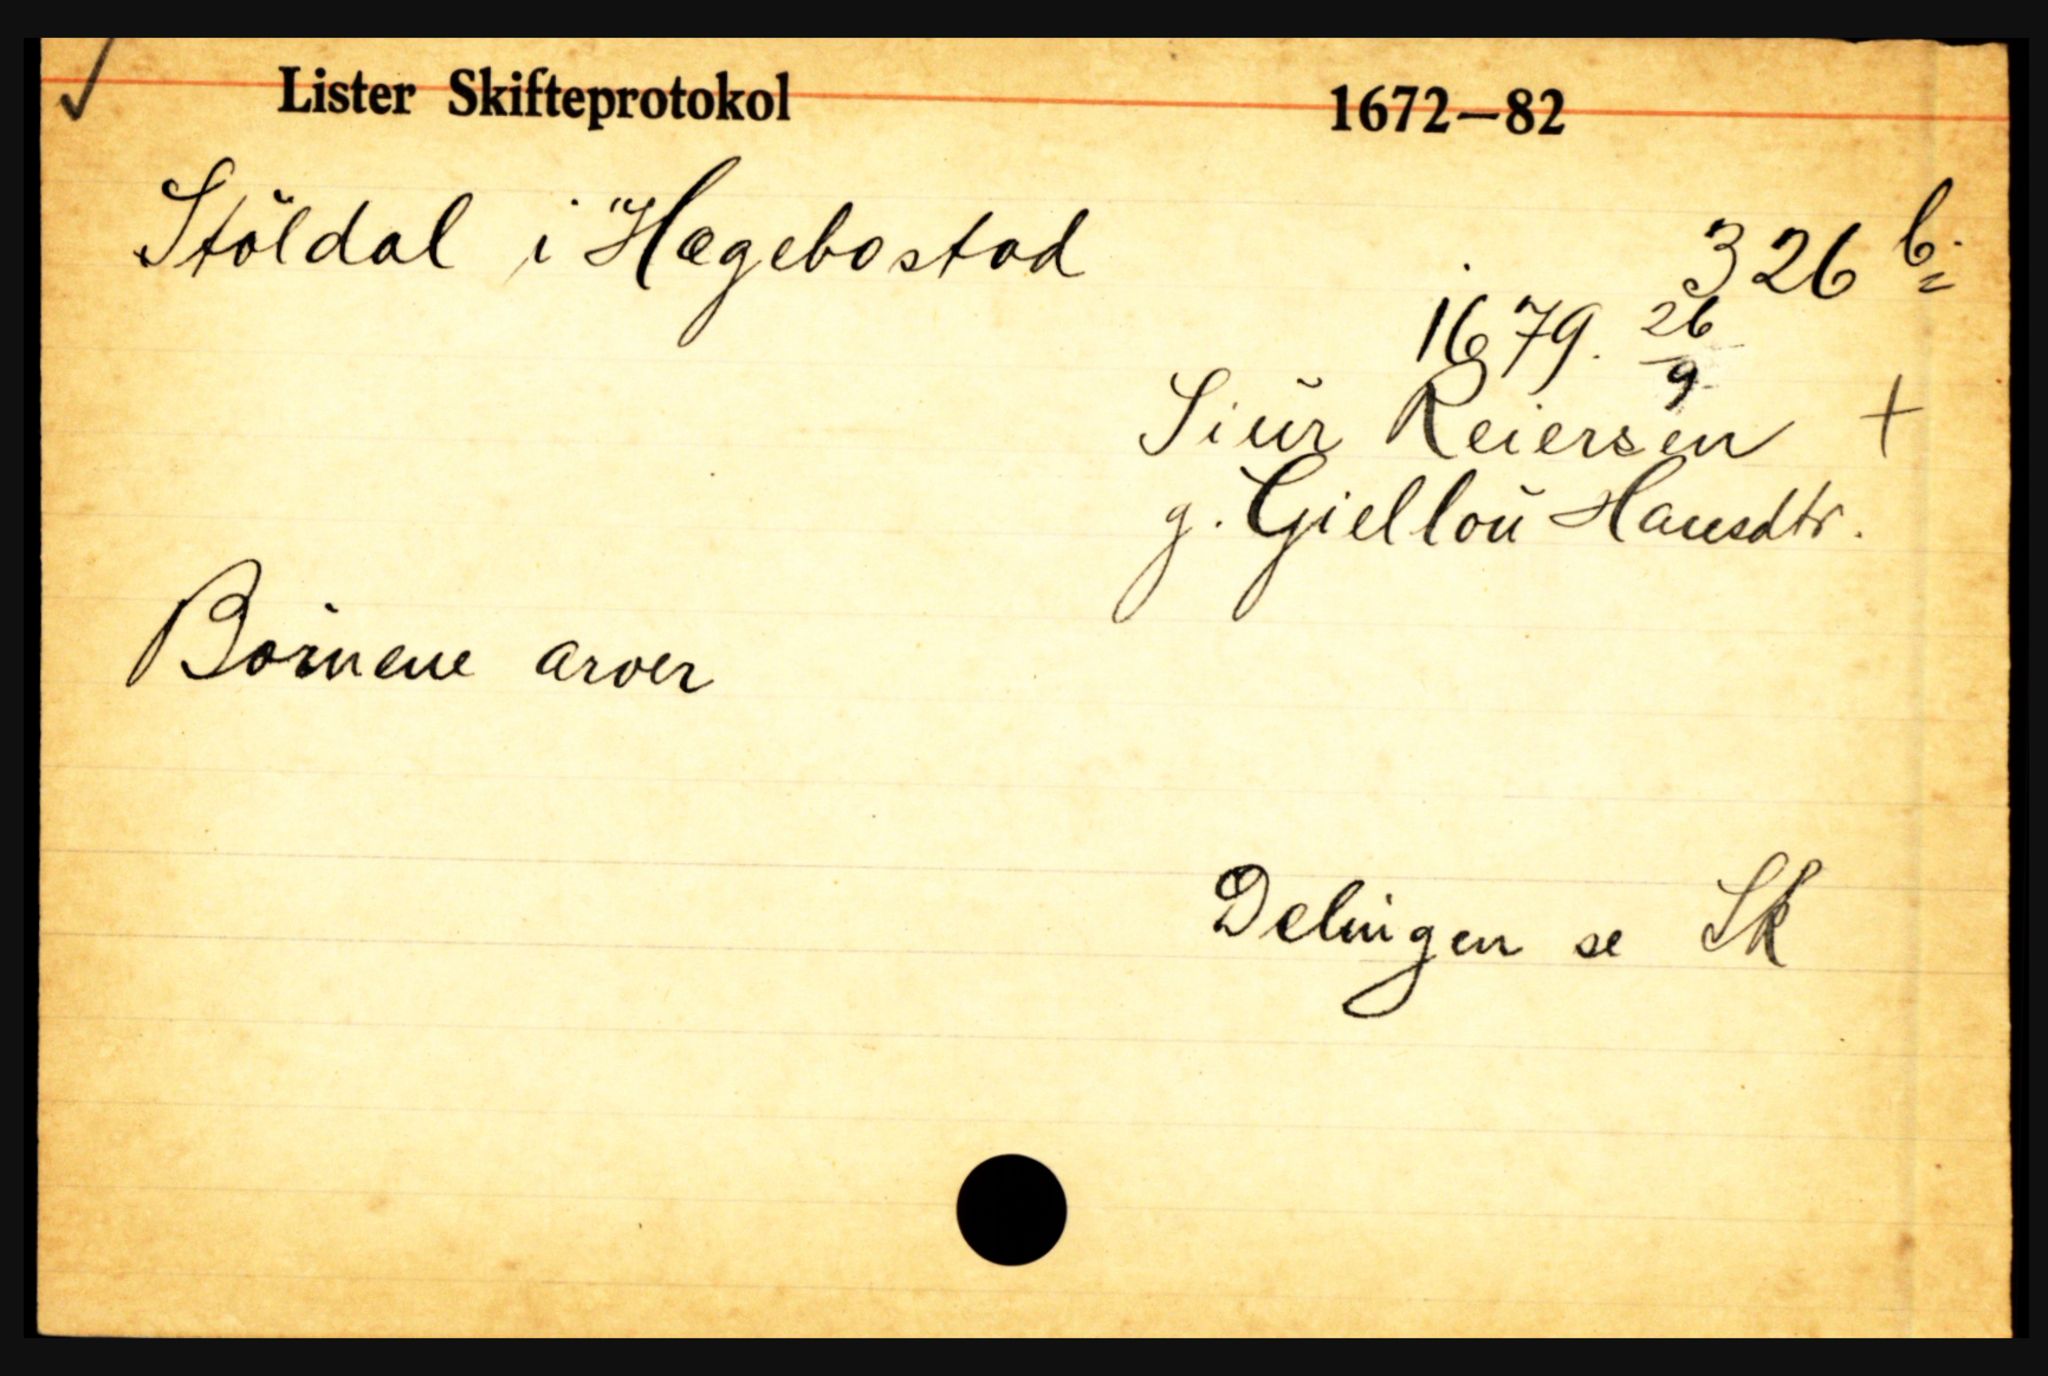 Lister Skifteprotokol 1672—82
Stöldal i Hægebostad
326 b.
1679. 26/9
Siŭr Reiersen +
g. Gielloŭ Hansdtr.
Börnene arver
Delingen se Sk